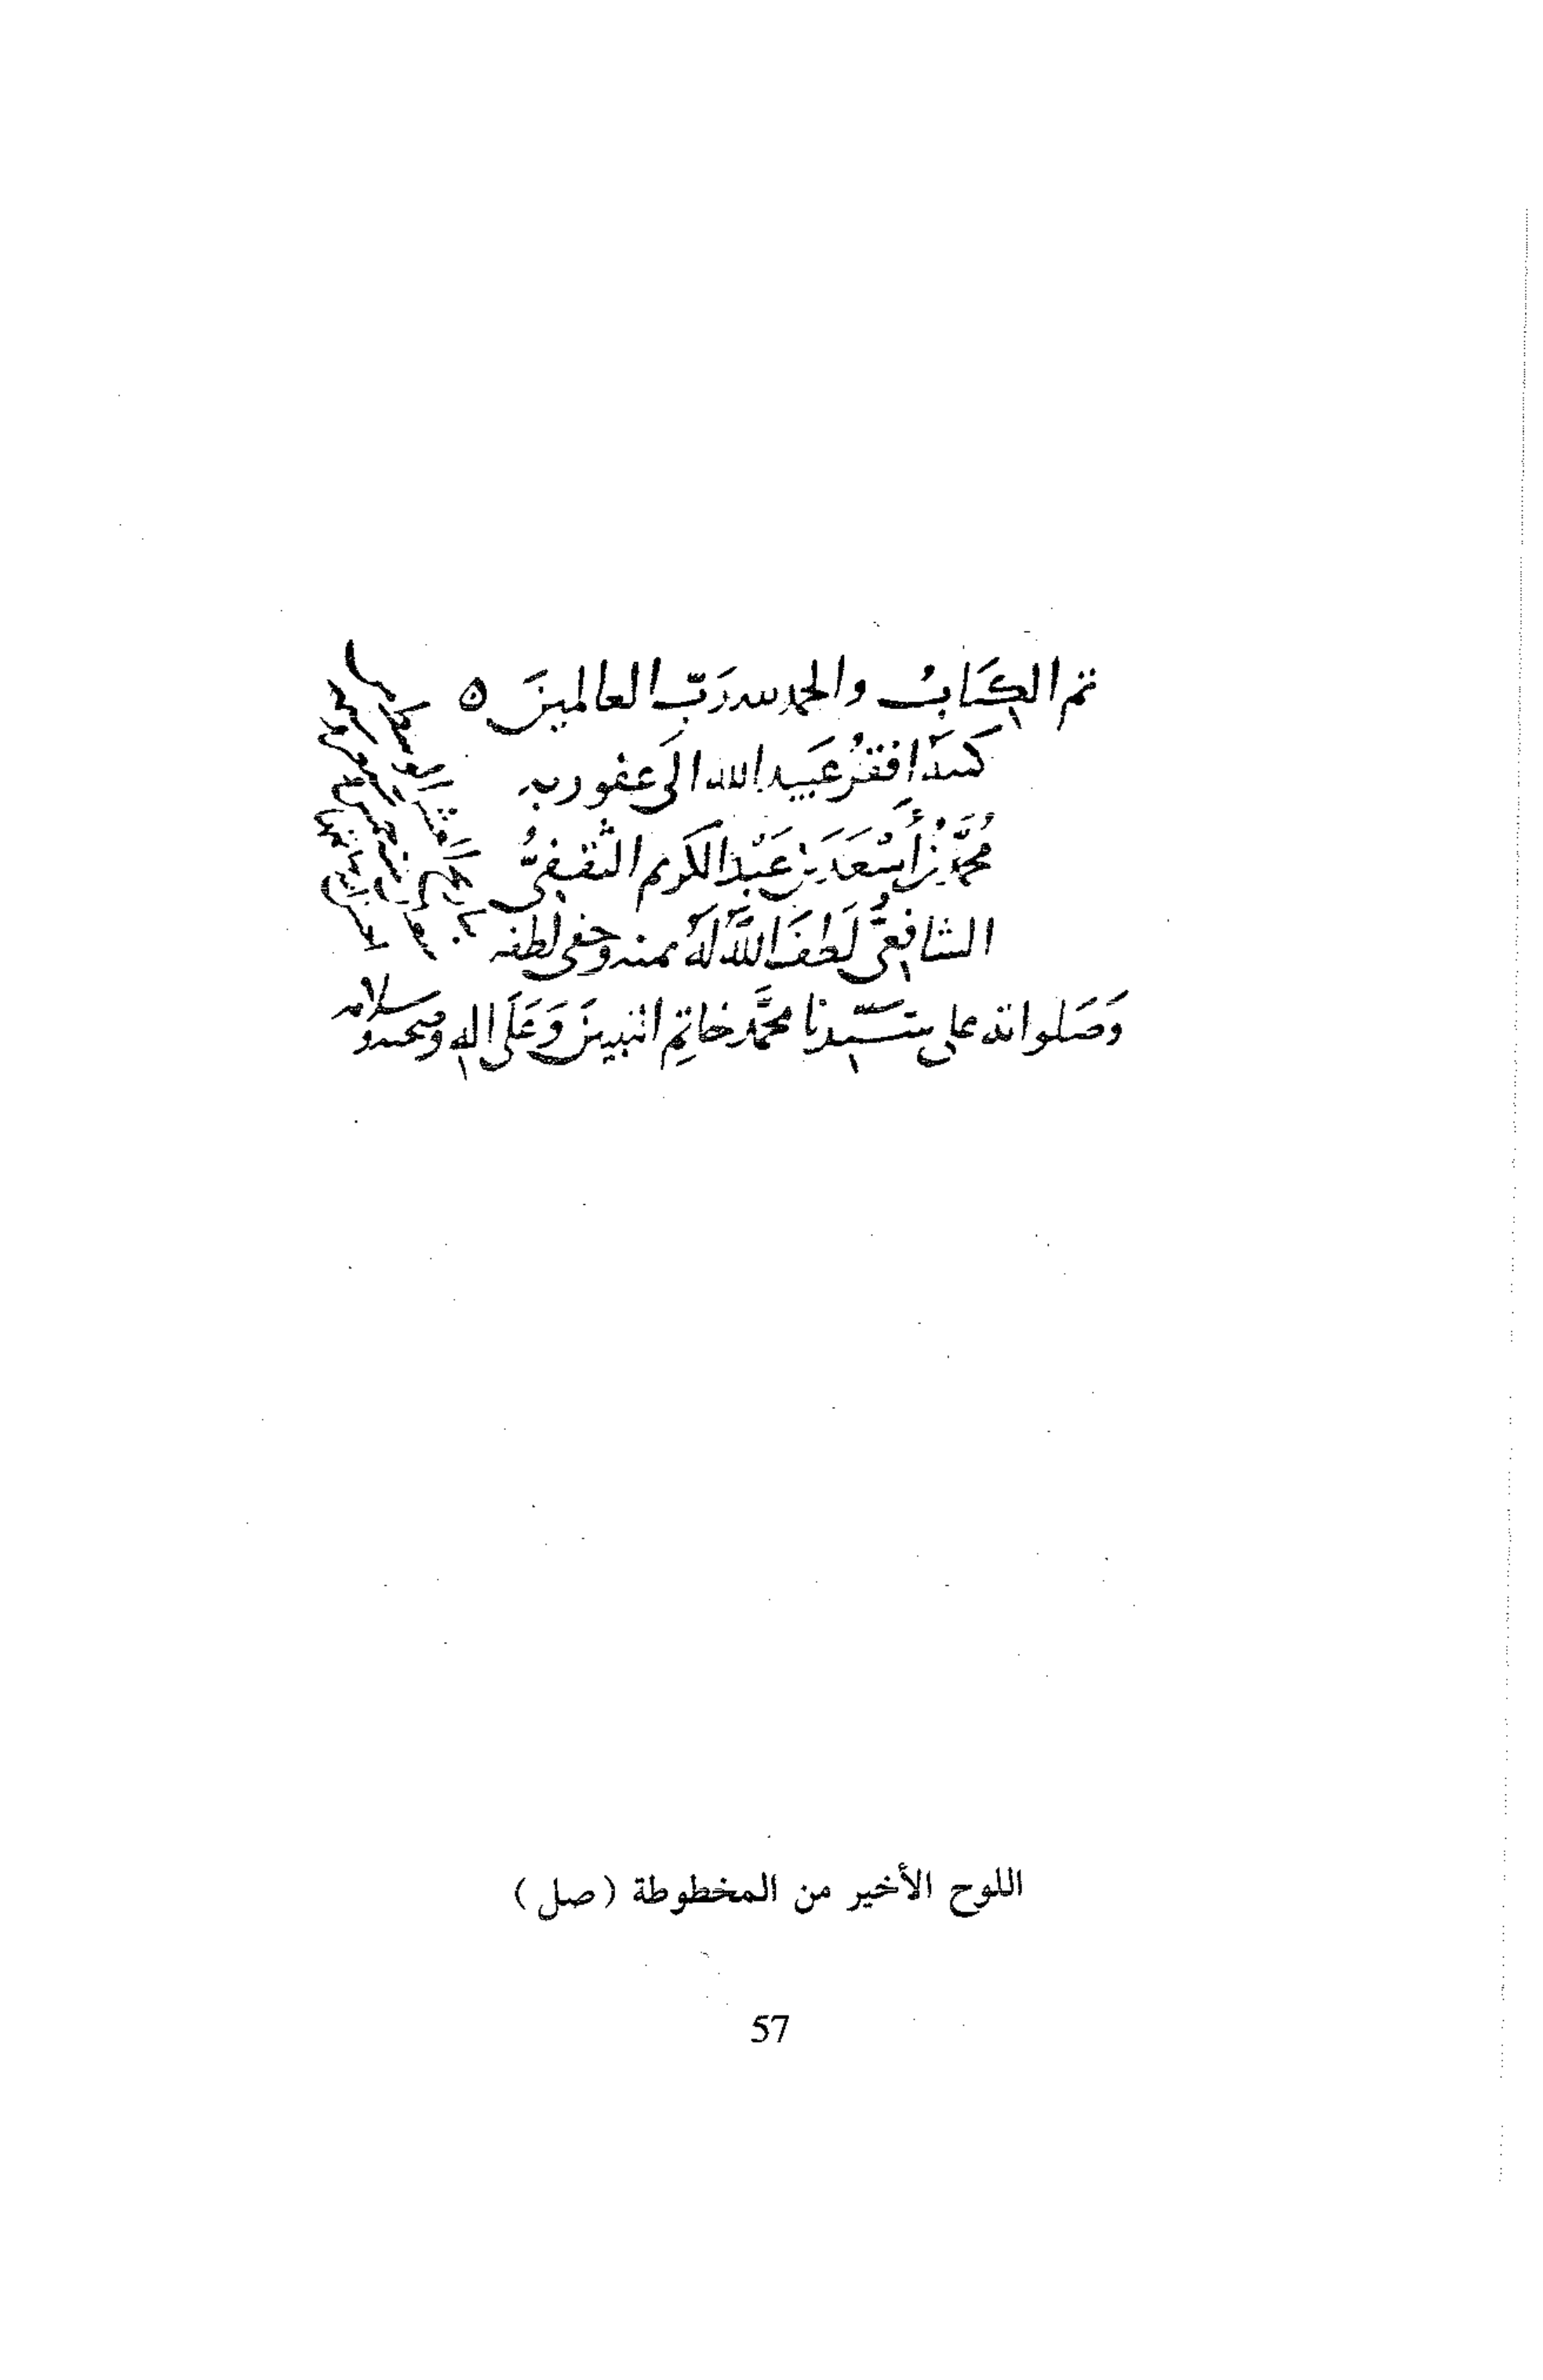 تم الكِتَابُ والحمد لله رَبّ العالمينَ ه
كتبه افقرُ عَبيد الله الى عفو ربه
مُحمَّد بن أَسْعَد بن عَبْد الكريم الثقفيُّ
الشافِعيُّ لَطفَ اللَّهُ لَهُ بمنه وخفي لطفه
وَصَلواته على سَيّدنا محمَّد خاتِم النبيينَ وَعَلَى اله وصحبه وسلامه
اللوح الأخير من المخطوطة (صل)
57